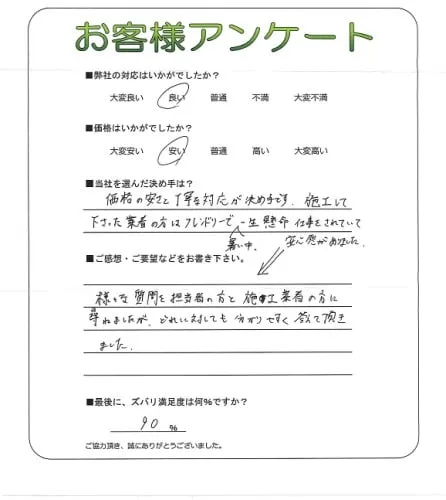 お客様アンケート
■弊社の対応はいかがでしたか？
大変良い 良い 普通 不満 大変不満
■価格はいかがでしたか？
大変安い 安い 普通 高い 大変高い
■当社を選んだ決め手は？
価格の安さと丁寧な対応が決め手です. 施工して
下さった業者の方はフレンドリーで 一生懸命 仕事をされていて
暑い中. 安心感がありました.
■ご感想・ご要望などをお書き下さい。
様々な質問を担当者の方と施工業者の方に
尋ねましたが、どれに対しても分かりやすく答えて頂き
ました.
■最後に、ズバリ満足度は何％ですか？
90 %
ご協力頂き、誠にありがとうございました。